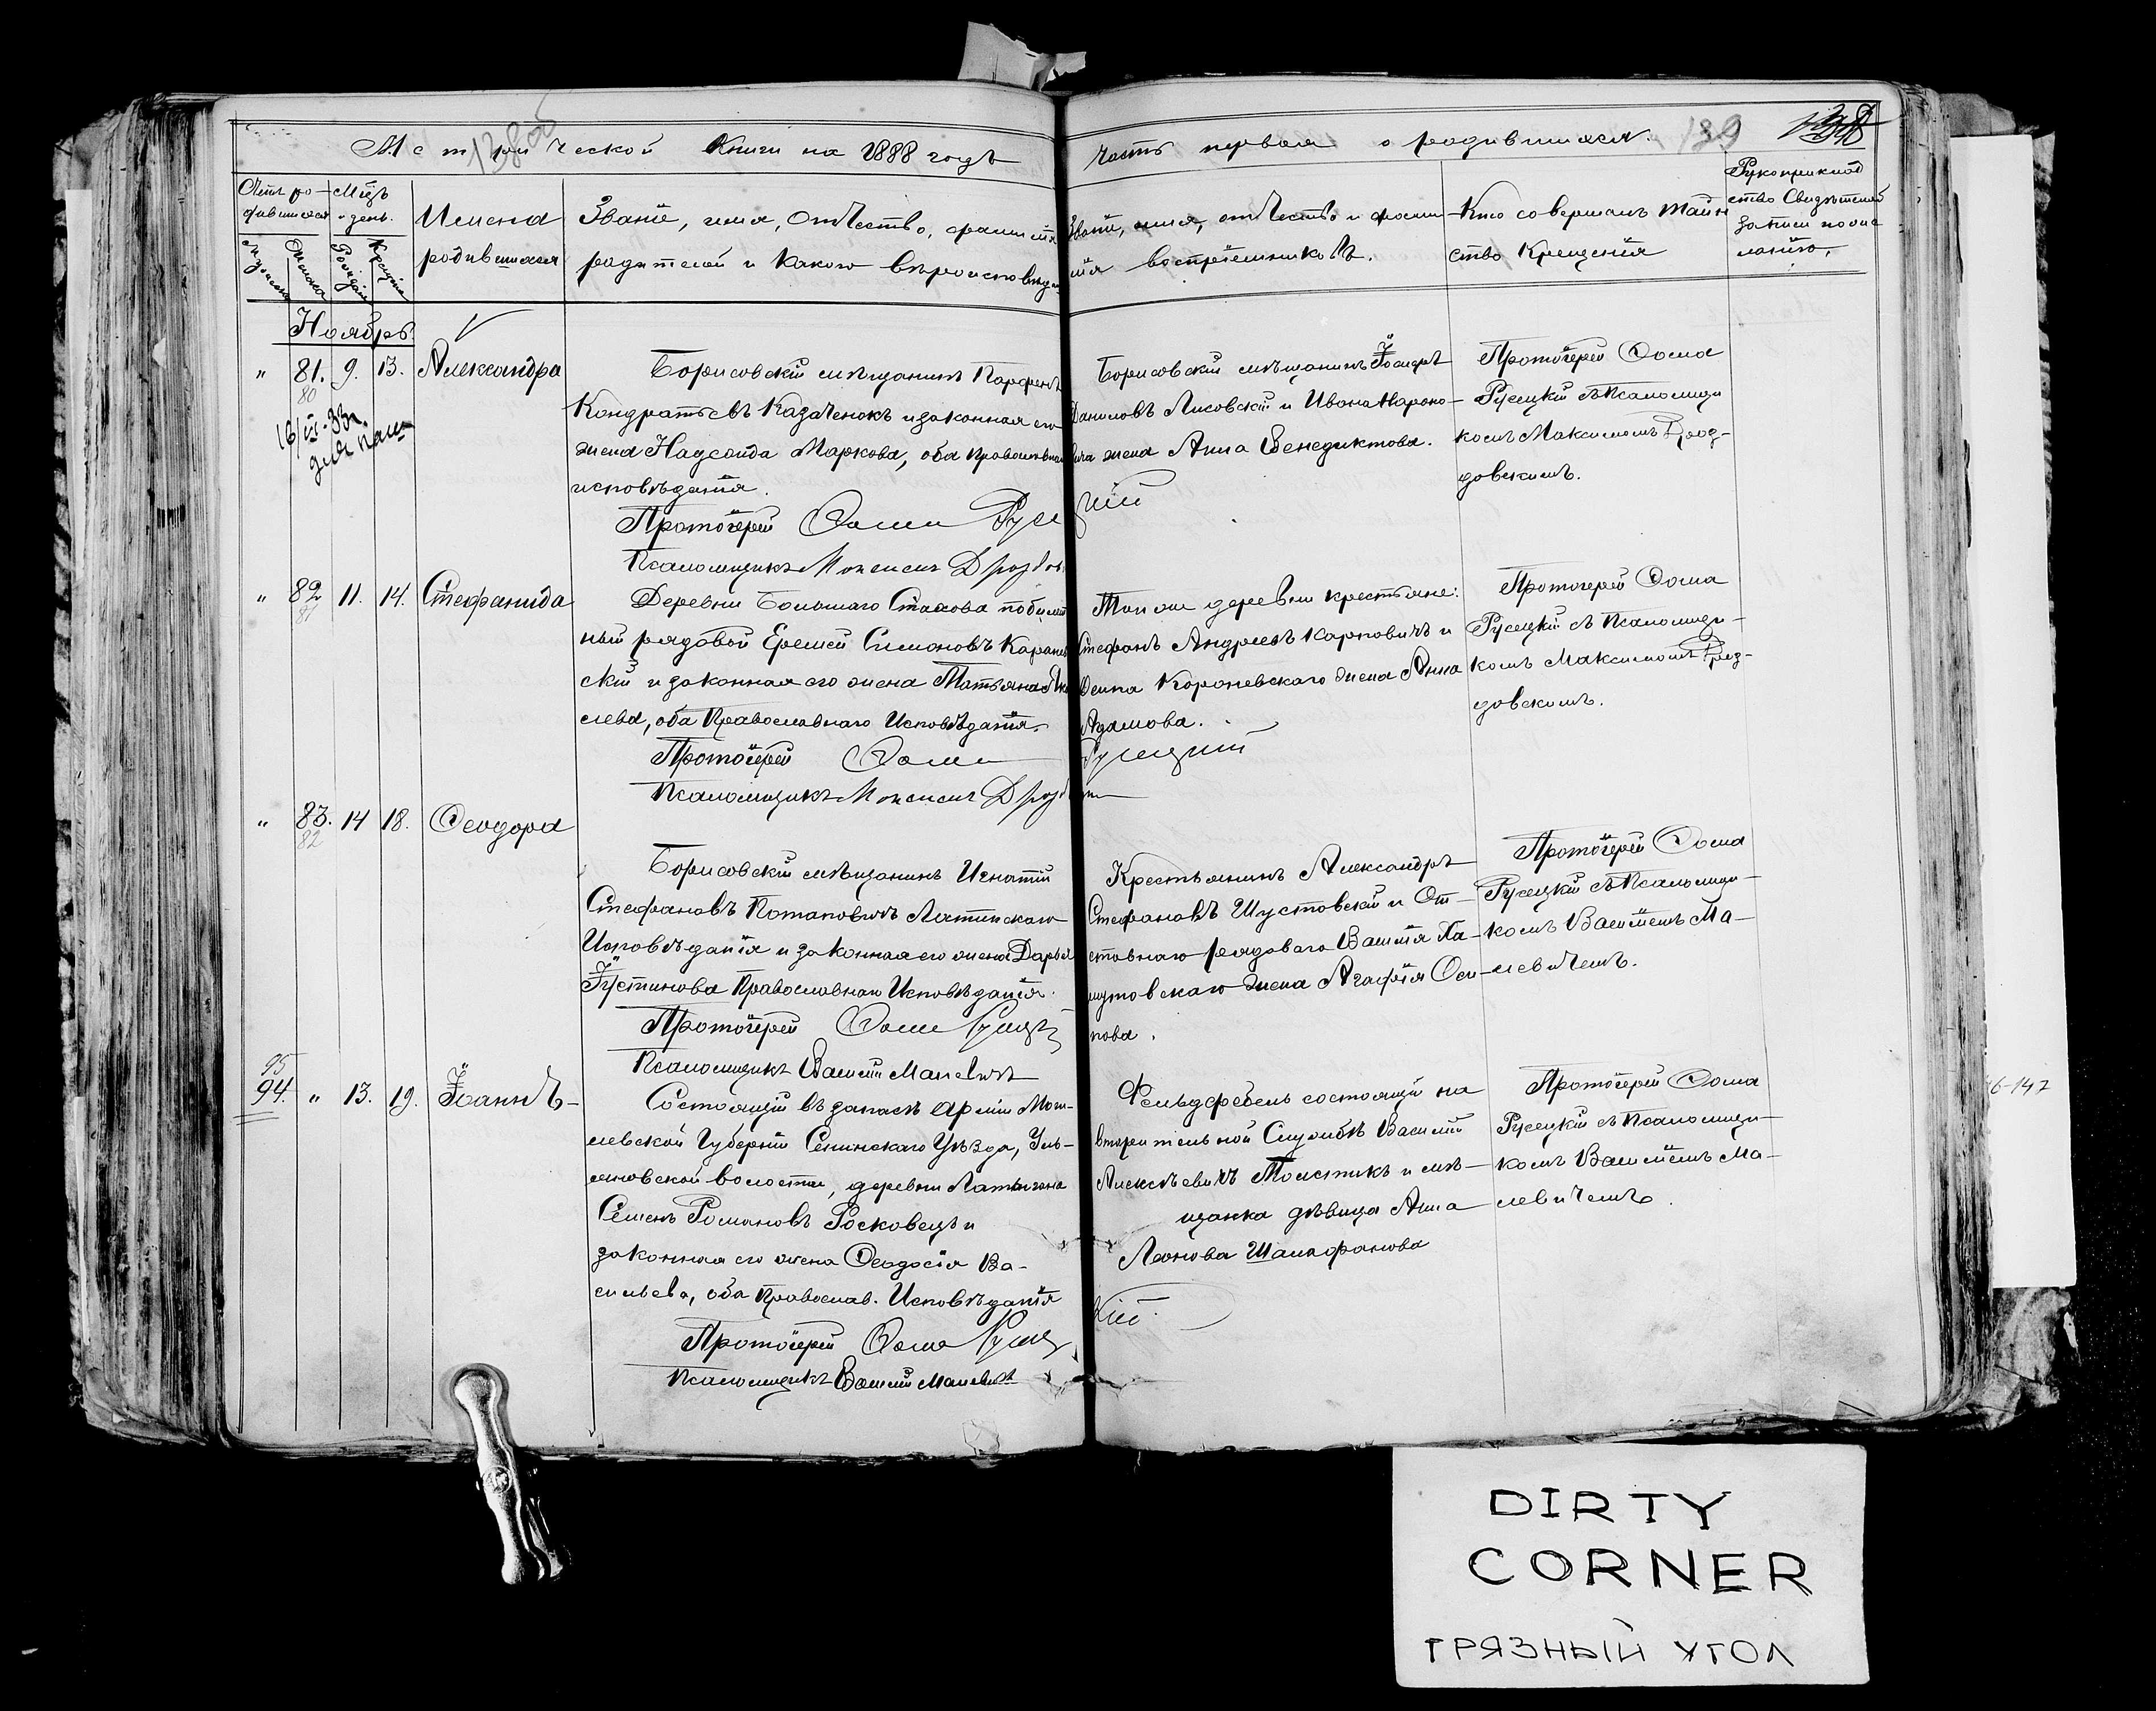 Метрической Книги на 1888 годъ
часть первая о родившихся.
139
Имена
родившихся
Званіе, имя, отчество, фамилія
родителей и какого вѣроисповѣда
Званіе, имя, отчество и фами
лія воспріемниковъ.
Кто совершалъ таин
ство Крещенія
Ноябрь
" 81. 9. 13. Александра
80
Борисовскій мѣщанинъ Парфенъ
Кондратьевъ Казаченокъ и законная его
жена Надежда Маркова, оба Православнаго
исповѣданія.
Протоіерей Ѳома Русецкій
Псаломщикъ Максимъ Дроздов
Борисовскій мѣщанинъ Іосифъ
Даниловъ Лисовскій и Ивана
жена Анна Венедиктова.
Протоіерей Ѳома
Русецкій съ Псаломщи
комъ Максимомъ Дроз-
довскимъ.
" 82 11. 14. Стефанида
81
Деревни Большаго Стахова
рядовой Еремей Симоновъ
скій и законная его жена Татьяна
слева, оба Православнаго Исповѣданія.
Протоіерей Ѳома Русецкій
Псаломщикъ Максимъ Дрозд
Той же деревни крестьяне:
Стефанъ Андреевъ Карповичъ и
Короневскаго жена Анна
Адамова.
Протоіерей Ѳома
Русецкій съ Псаломщи-
комъ Максимомъ Дроз-
довскимъ.
" 83. 14 18. Ѳеодора
82
Борисовскій мѣщанинъ Игнатій
Стефановъ Потаповичъ Латинскаго
Исповѣданія и законная его жена Дарья
Іустинова Православнаго Исповѣданія.
Протоіерей Ѳома Русецк
Псаломщикъ Василій Малевичъ
Крестьянинъ Александръ
Стефановъ Шустовскій и От-
ставнаго рядоваго Василія
жена Агафія Оси-
пова.
Протоіерей Ѳома
Русецкій съ Псаломщи-
комъ Василіемъ Ма-
левичемъ.
95
94. " 13. 19. Іоаннъ-
Состоящій въ запасѣ Арміи Моги-
левской Губерніи Сенинскаго Уѣзда, Уль-
яновской волости, деревни Латыгова
Семенъ Романовъ Росковецъ и
законная его жена Ѳеодосія Ва-
сильева, оба Православ. Исповѣданія
Протоіерей Ѳома Русецкій
Псаломщикъ Василій Малевичъ
Фельдфебель состоящій на
вторительной Службѣ Василій
Алексѣевичъ Толстикъ и мѣ-
щанка дѣвица Анна
Леонова
Протоіерей Ѳома
Русецкій съ Псаломщи-
комъ Василіемъ Ма-
левичемъ.
DIRTY
CORNER
ГРЯЗНЫЙ УГОЛ